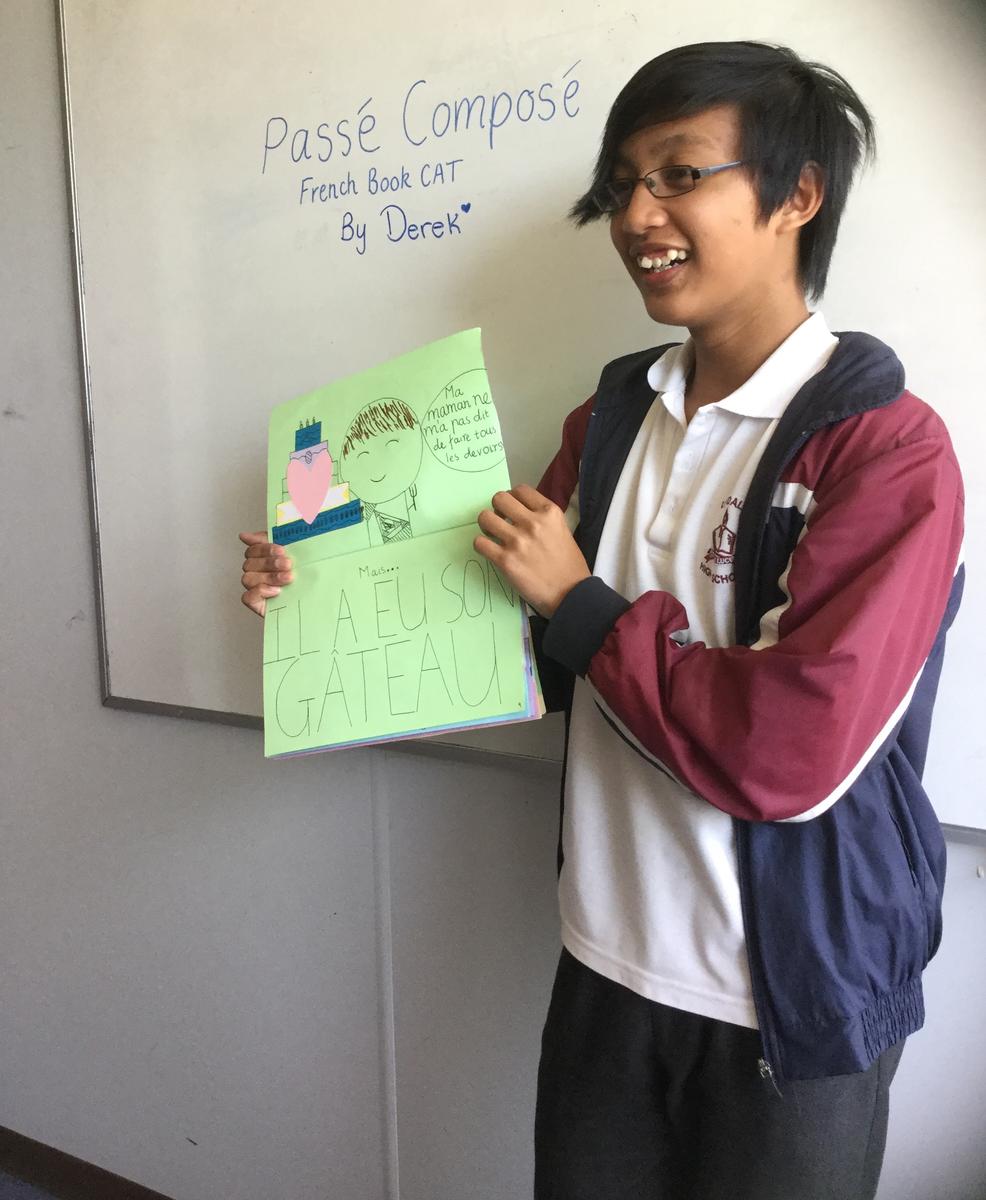 Passé Composé
French Book CAT
By Derek
Ma
maman ne
m'a pas dit
de faire tous
les devoirs
Mais...
IL A EU SON
GÂTEAU.
HIGH SCHOOL